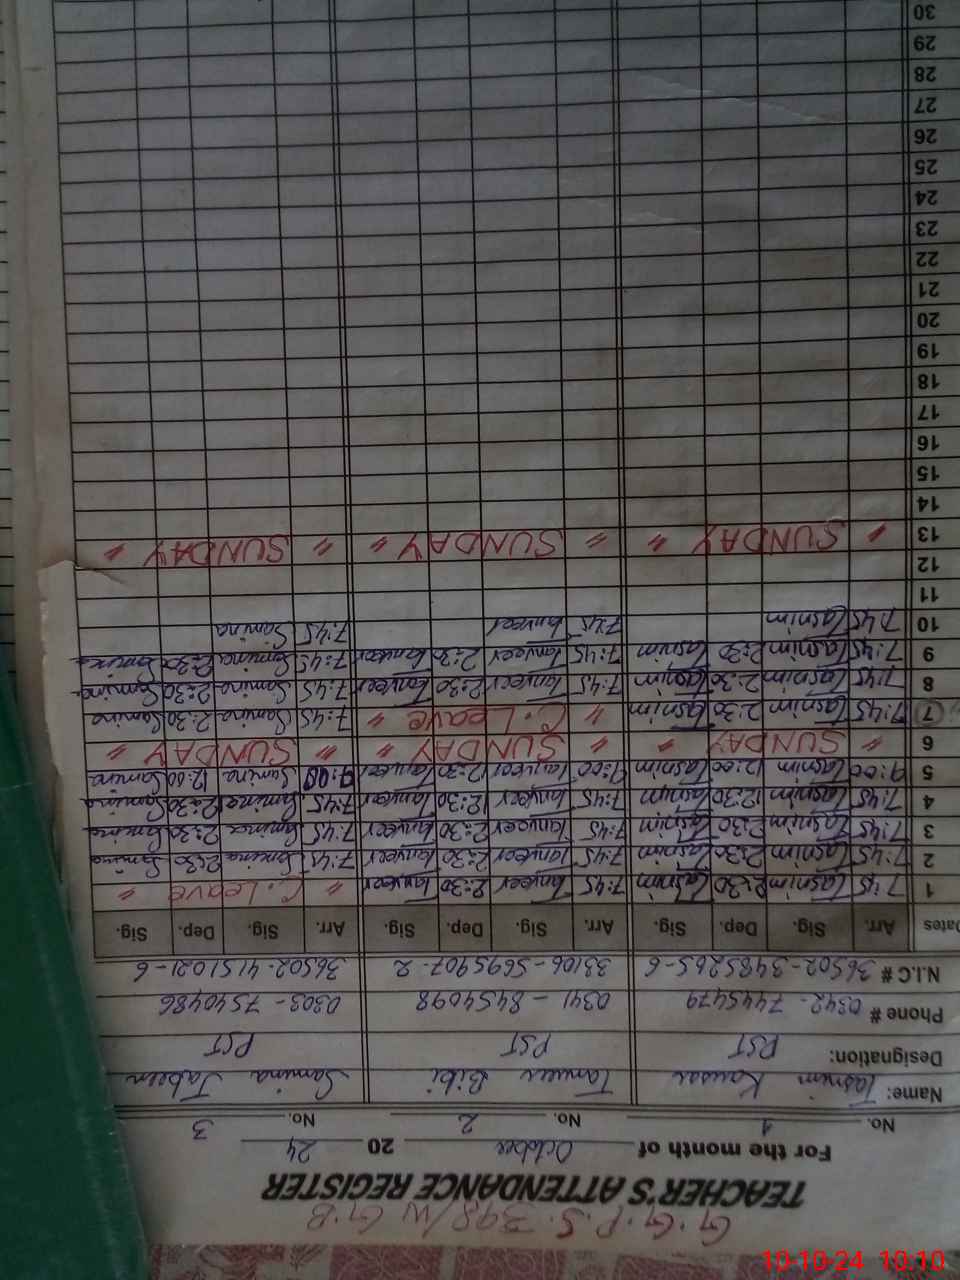 G.G.P.S. 398/W G.B
TEACHER'S ATTENDANCE REGISTER
For the month of October 20 24
No. 1 No. 2 No. 3
Name: Tasnim Kausar Tanveer Bibi Samina Jabeen
Designation: PST PST PST
Phone # 0342-7445479 0341-8454098 0303-7540486
N.I.C # 36502-3485265-6 33106-5695907-2 36502-4151021-6
Dates Arr. Sig. Dep. Sig. Arr. Sig. Dep. Sig. Arr. Sig. Dep. Sig.
1 7:45 Tasnim 2:30 Tasnim 7:45 Tanveer 2:30 Tanveer " C. Leave "
2 7:45 Tasnim 2:30 Tasnim 7:45 Tanveer 2:30 Tanveer 7:45 Samina 2:30 Samina
3 7:45 Tasnim 2:30 Tasnim 7:45 Tanveer 2:30 Tanveer 7:45 Samina 2:30 Samina
4 7:45 Tasnim 12:30 Tasnim 7:45 Tanveer 12:30 Tanveer 7:45 Samina 12:30 Samina
5 9:00 Tasnim 12:00 Tasnim 9:00 Tanveer 12:30 Tanveer 9:00 Samina 12:00 Samina
6 " SUNDAY " " SUNDAY " " SUNDAY "
7 7:45 Tasnim 2:30 Tasnim " C. Leave " 7:45 Samina 2:30 Samina
8 7:45 Tasnim 2:30 Tasnim 7:45 Tanveer 2:30 Tanveer 7:45 Samina 2:30 Samina
9 7:45 Tasnim 2:30 Tasnim 7:45 Tanveer 2:30 Tanveer 7:45 Samina 2:30 Samina
10 7:45 Tasnim 7:45 Tanveer 7:45 Samina
11
12
13 " SUNDAY " " SUNDAY " " SUNDAY "
14
15
16
17
18
19
20
21
22
23
24
25
26
27
28
29
30
10-10-24 10:10